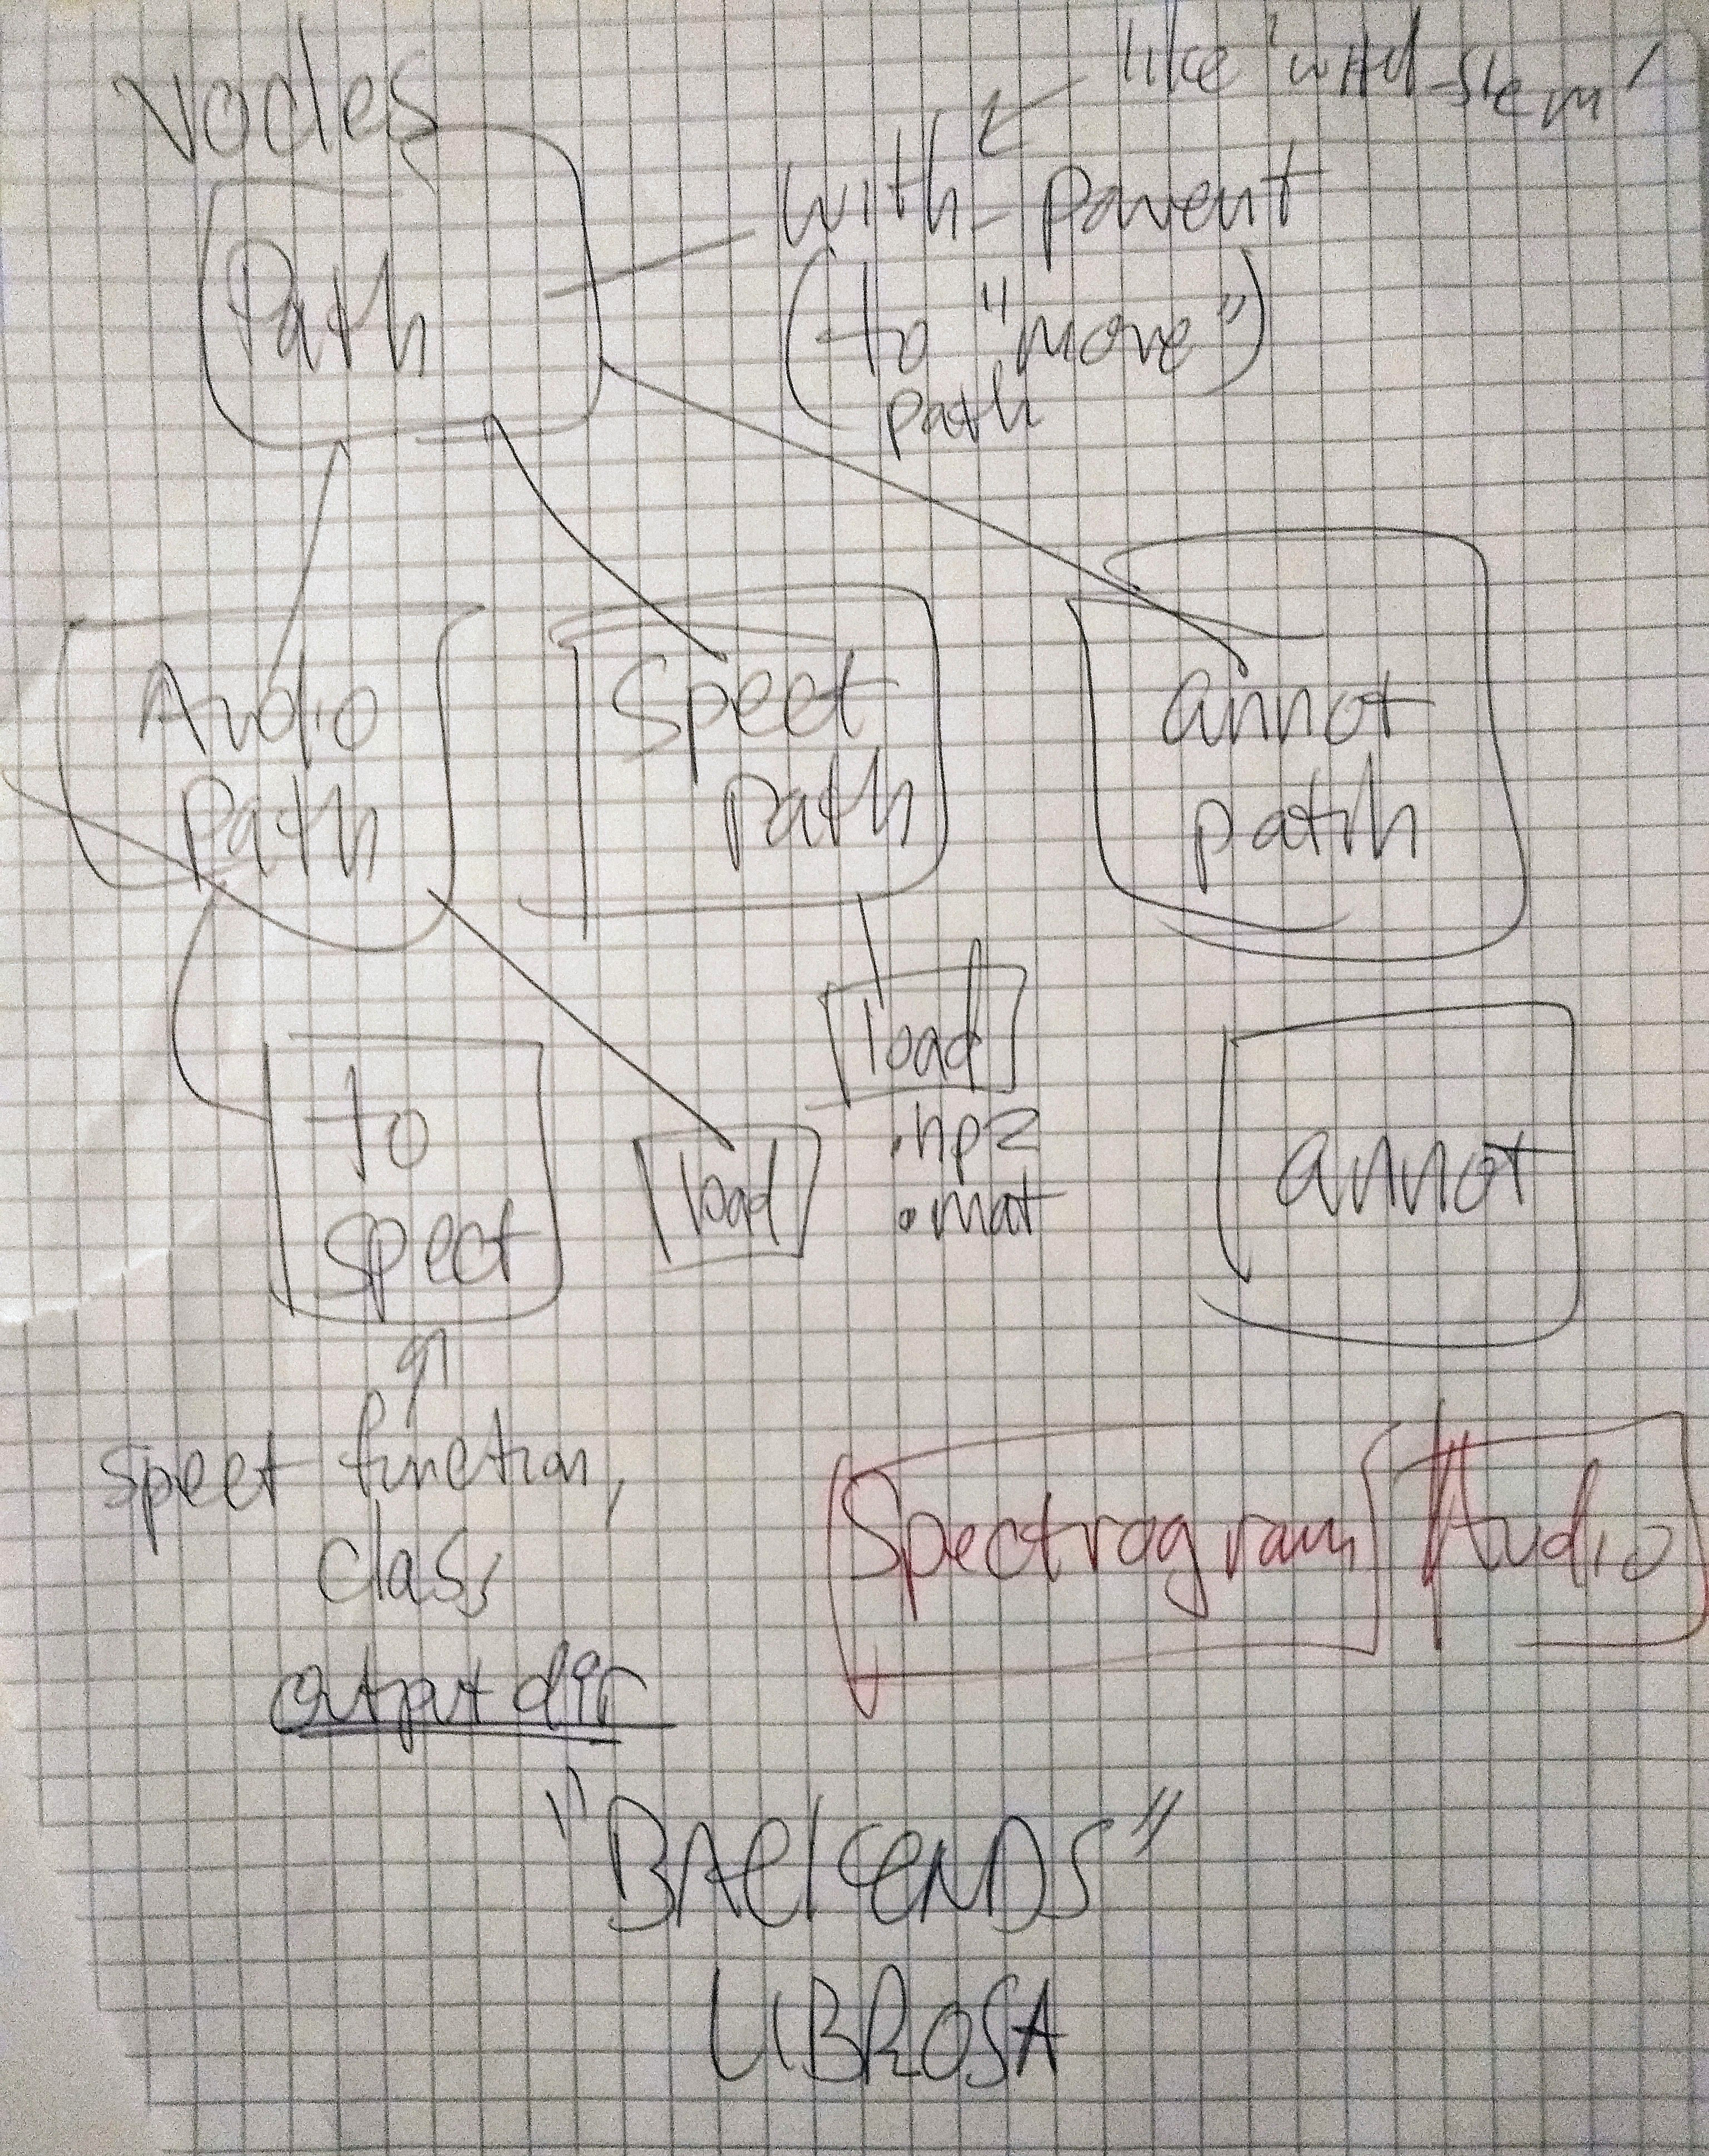 Nodes
like 'with_stem'
with_parent
(to "move")
path
Path
Audio
Path
Spect
Path
annot
path
load
.npz
.mat
to
spect
load
annot
spect function,
class
output dir
Spectrogram
Audio
"BACKENDS"
LIBROSA